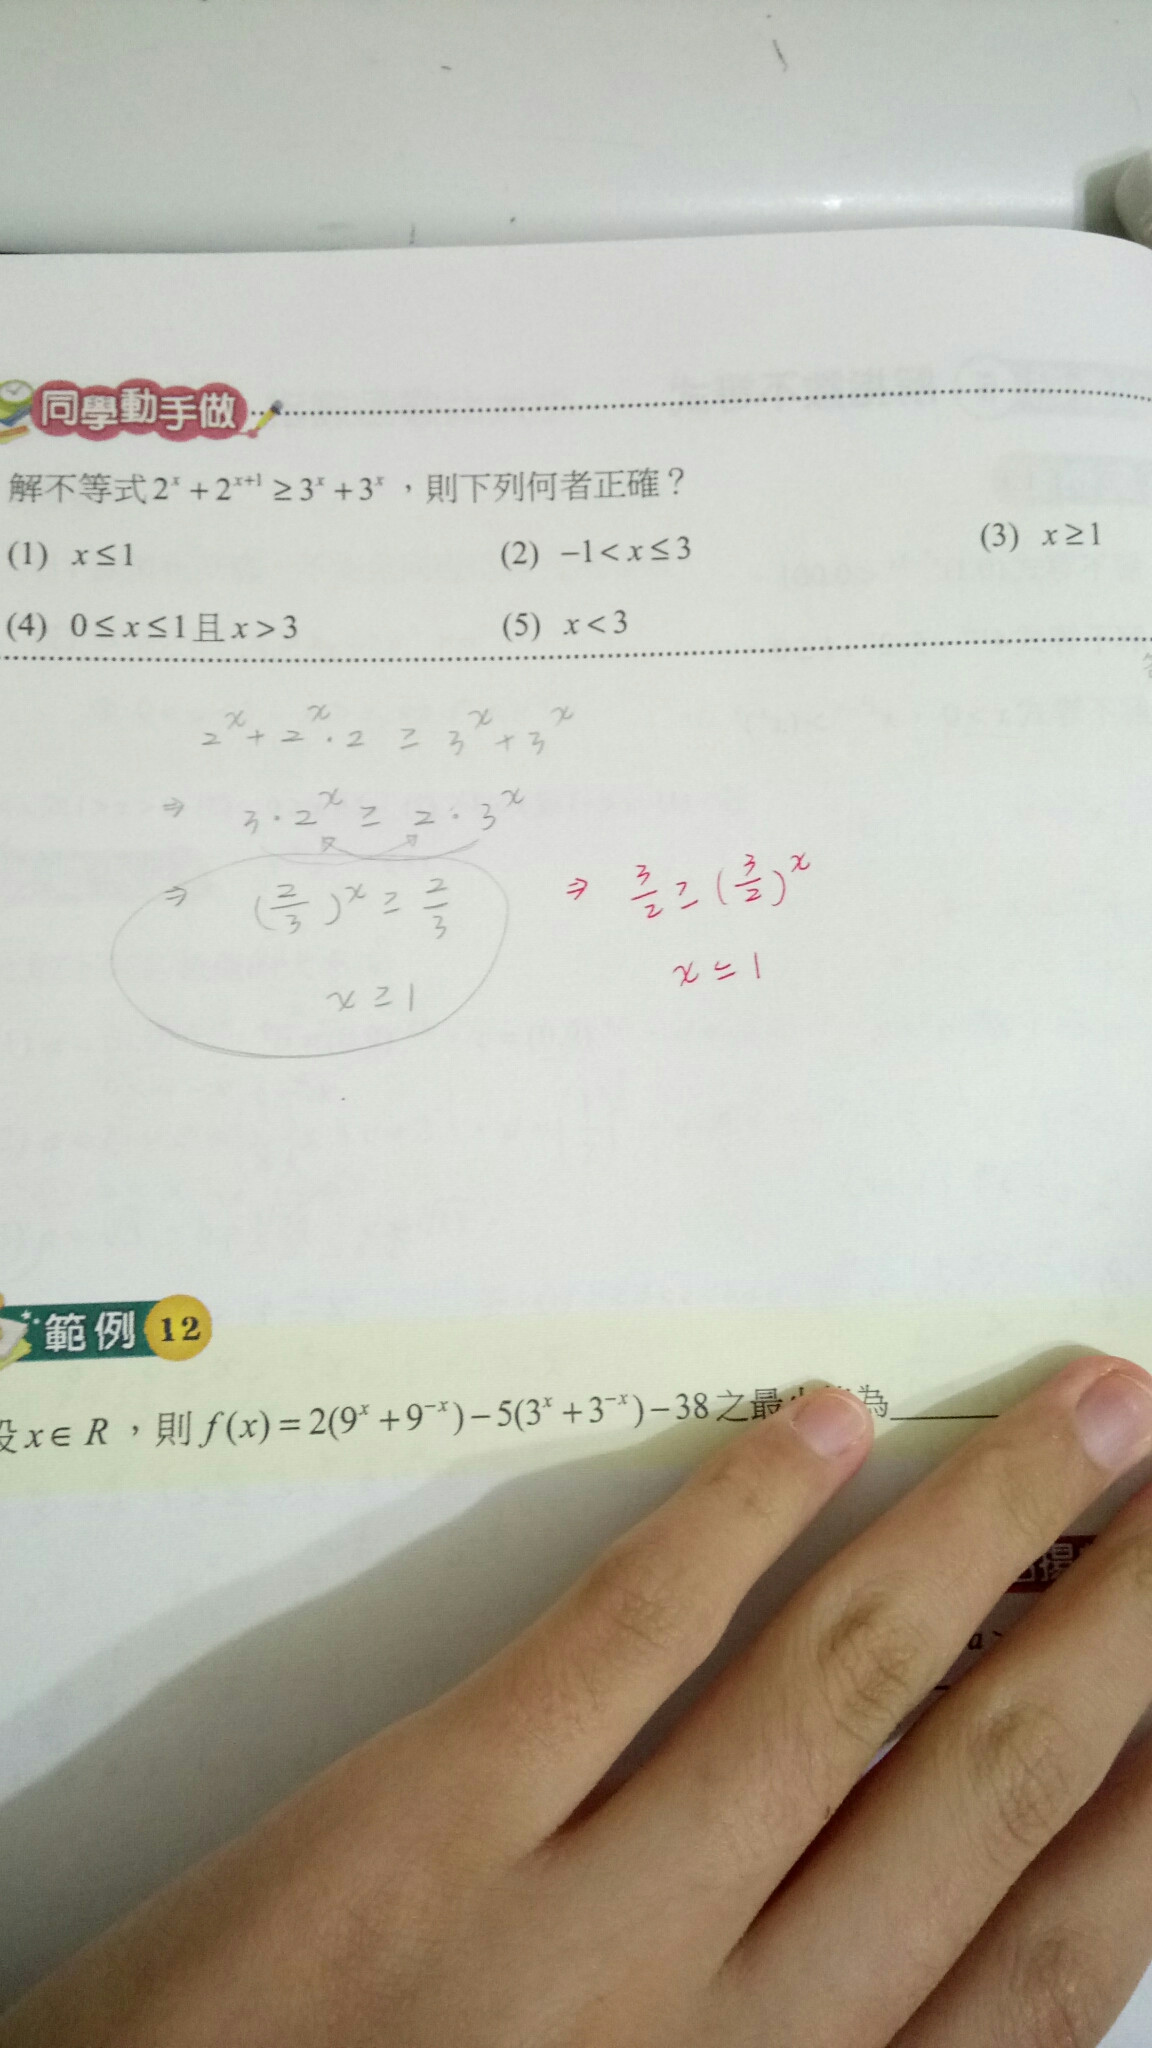 同學動手做
解不等式 2ˣ + 2ˣ⁺¹ ≥ 3ˣ + 3ˣ，則下列何者正確？
(1) x ≤ 1 (2) −1 < x ≤ 3 (3) x ≥ 1
(4) 0 ≤ x ≤ 1 且 x > 3 (5) x < 3
2ˣ + 2ˣ · 2 ≥ 3ˣ + 3ˣ
⇒ 3 · 2ˣ ≥ 2 · 3ˣ
⇒ (2/3)ˣ ≥ 2/3 ⇒ 3/2 ≥ (3/2)ˣ
x ≥ 1 x ≤ 1
範例 12
設 x ∈ R，則 f(x) = 2(9ˣ + 9⁻ˣ) − 5(3ˣ + 3⁻ˣ) − 38 之最 為